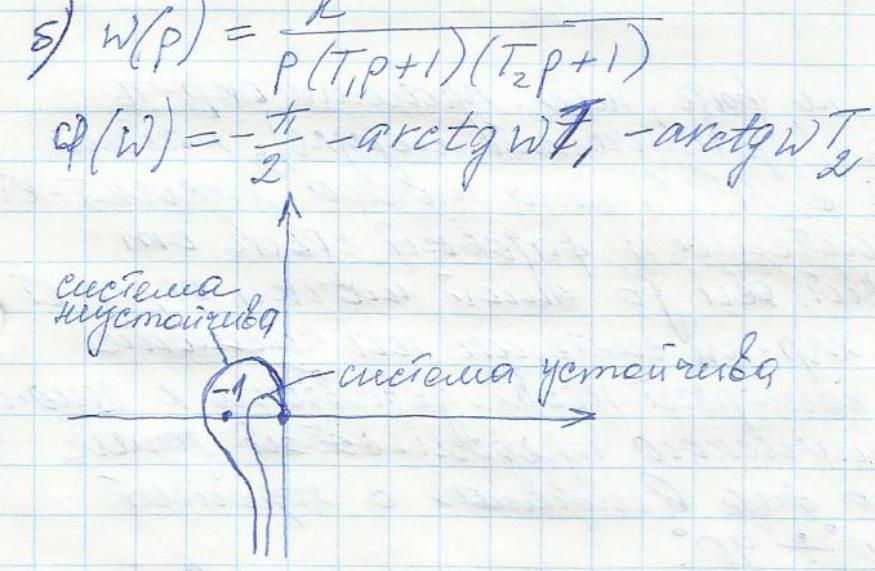 б) W(p) = K / p(T₁p+1)(T₂p+1)
φ(ω) = -π/2 - arctg ωT₁ - arctg ωT₂
система
неустойчива
-1
система устойчива